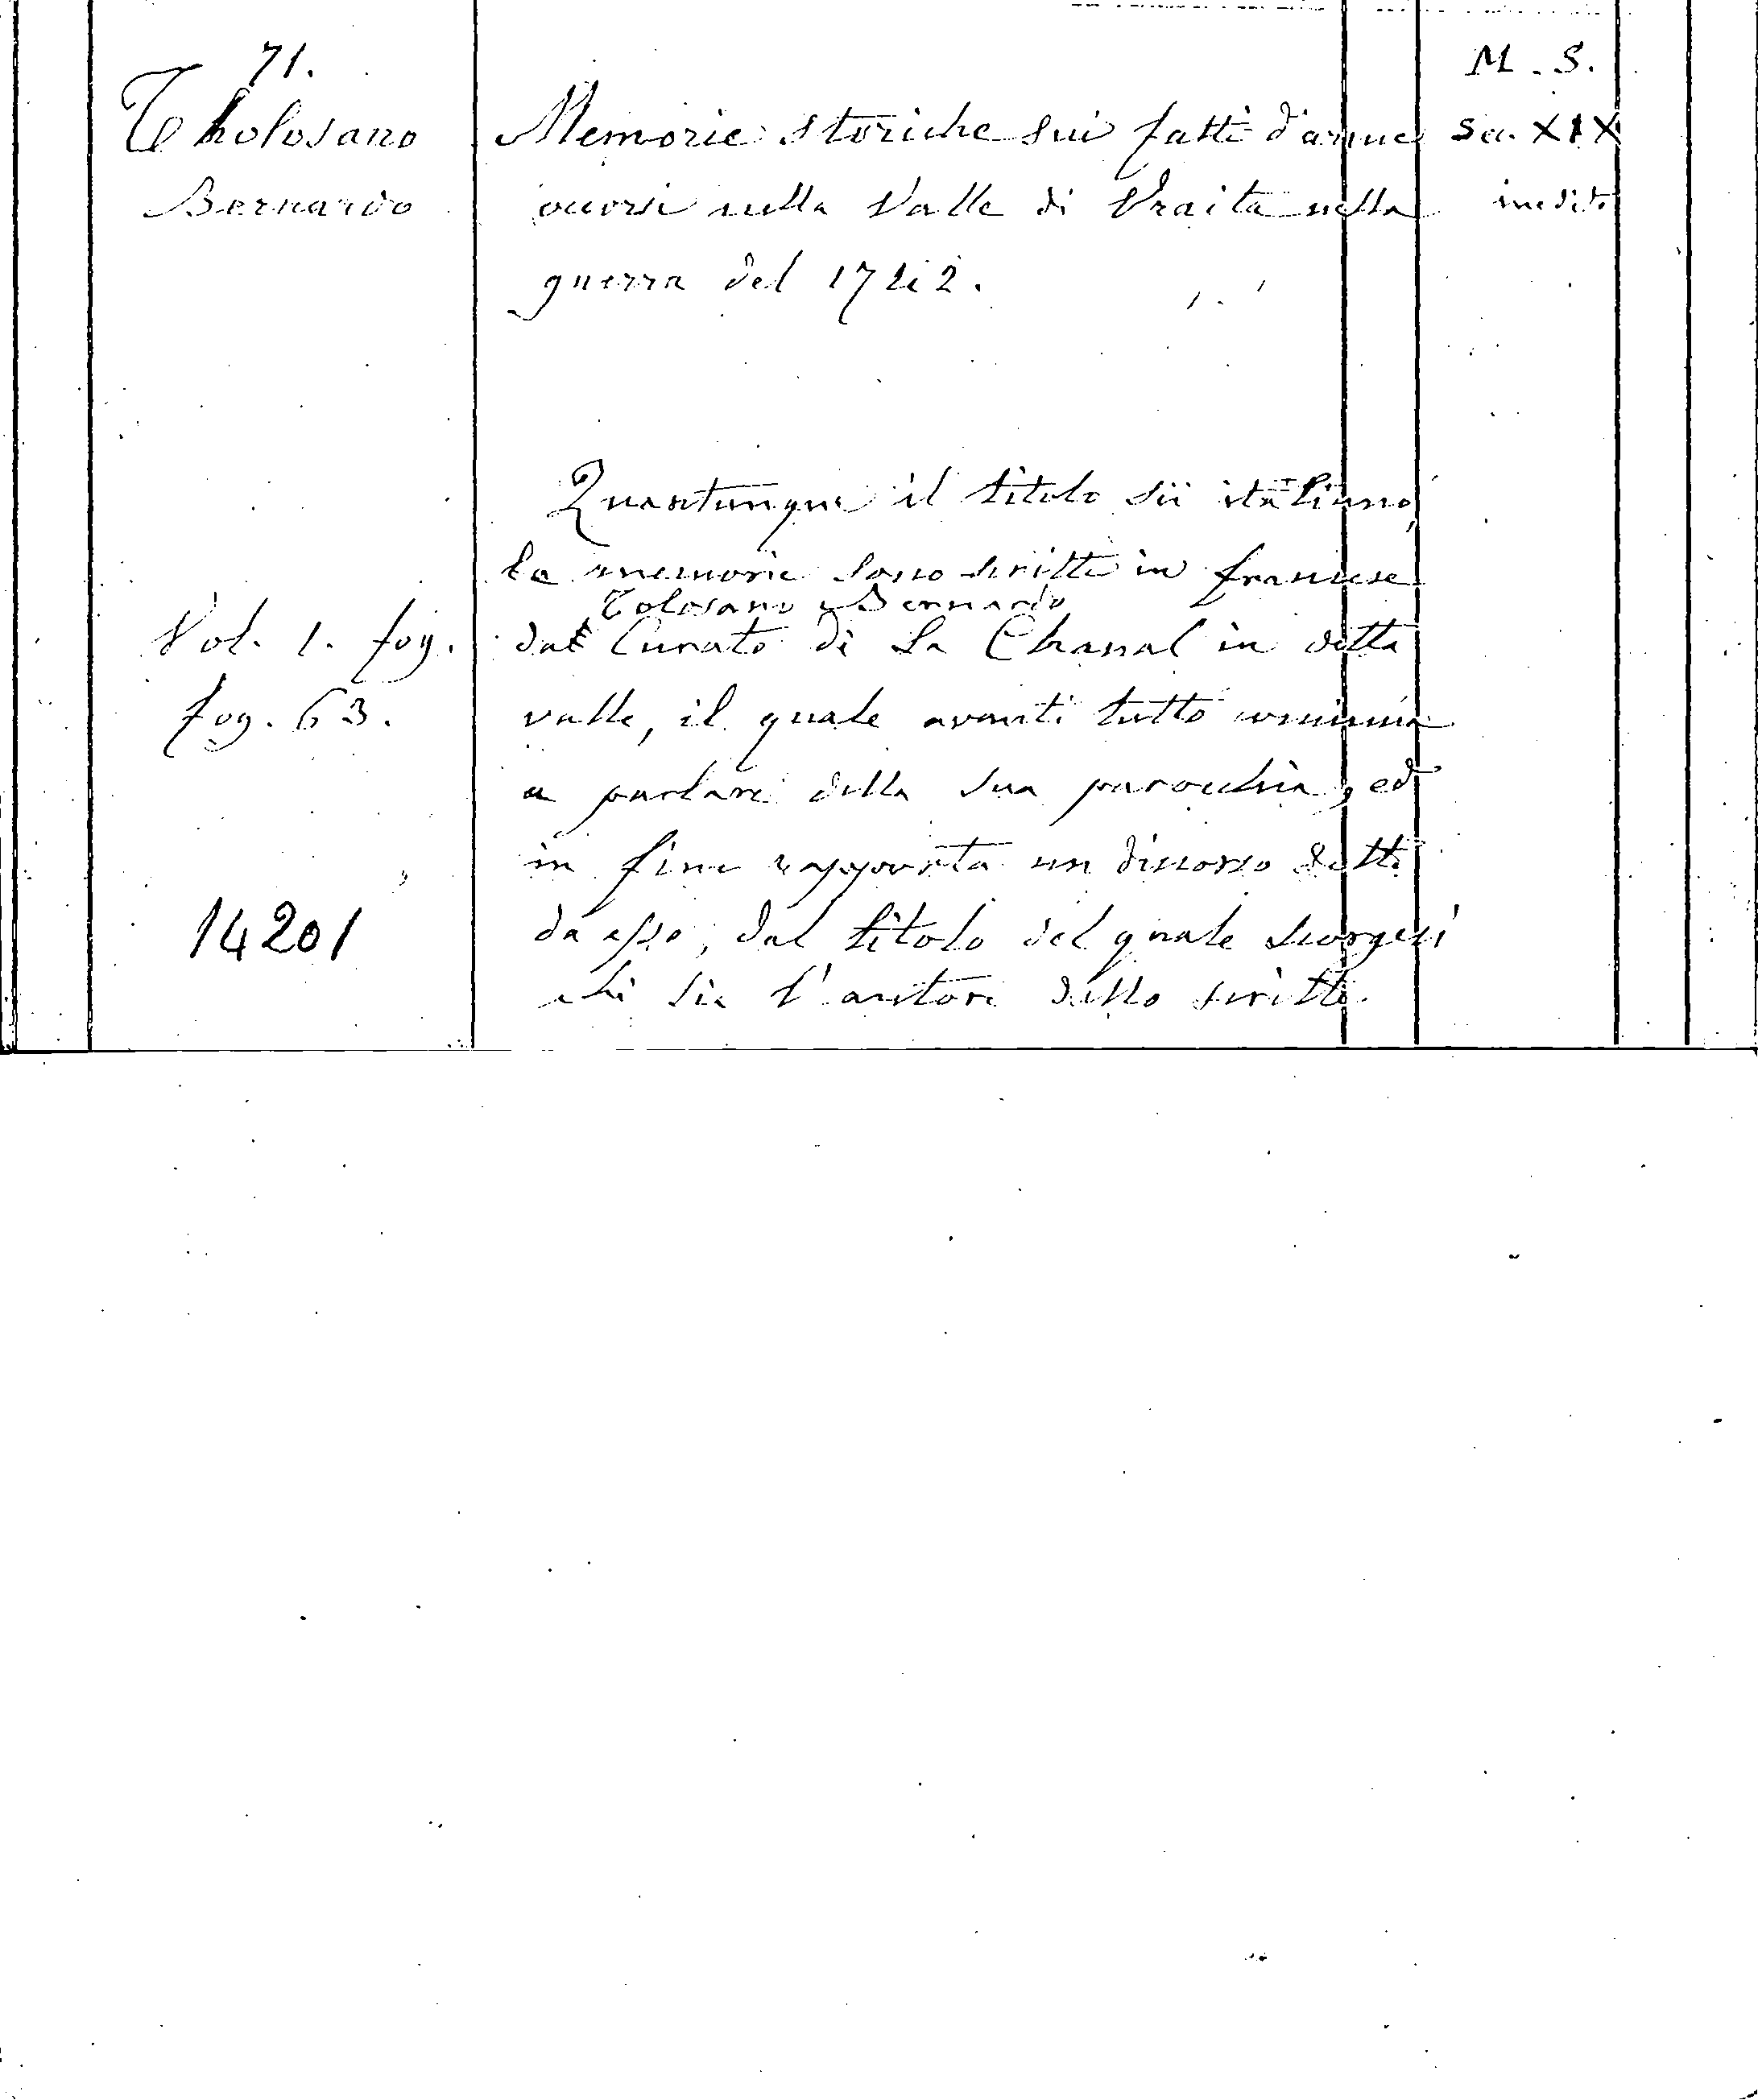 71.
Tholosano
Bernardo
Memorie storiche sui fatti d'arme
occorsi nella Valle di Vraita nella
guerra del 1742.
M. S.
Sec. XIX
inedito
Quantunque il titolo sii italiano,
le memorie sono scritte in francese
Tolosano Bernardo
dal Curato di La Chanal in detta
valle, il quale avanti tutto comincia
a parlare della sua parocchia, ed
in fine rapporta un discorso detto
da esso, dal titolo del quale scorgesi
chi sia l'autore dello scritto.
Vol. 1. fog.
fog. 63.
14201